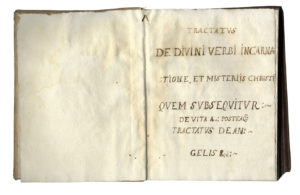 TRACTATVS
DE DIVINI VERBI INCARNA
TIONE, ET MISTERIIS CHRISTI
QVEM SVBSEQVITVR:~
DE VITA
TRACTATVS DE AN:~
GELIS &.:~